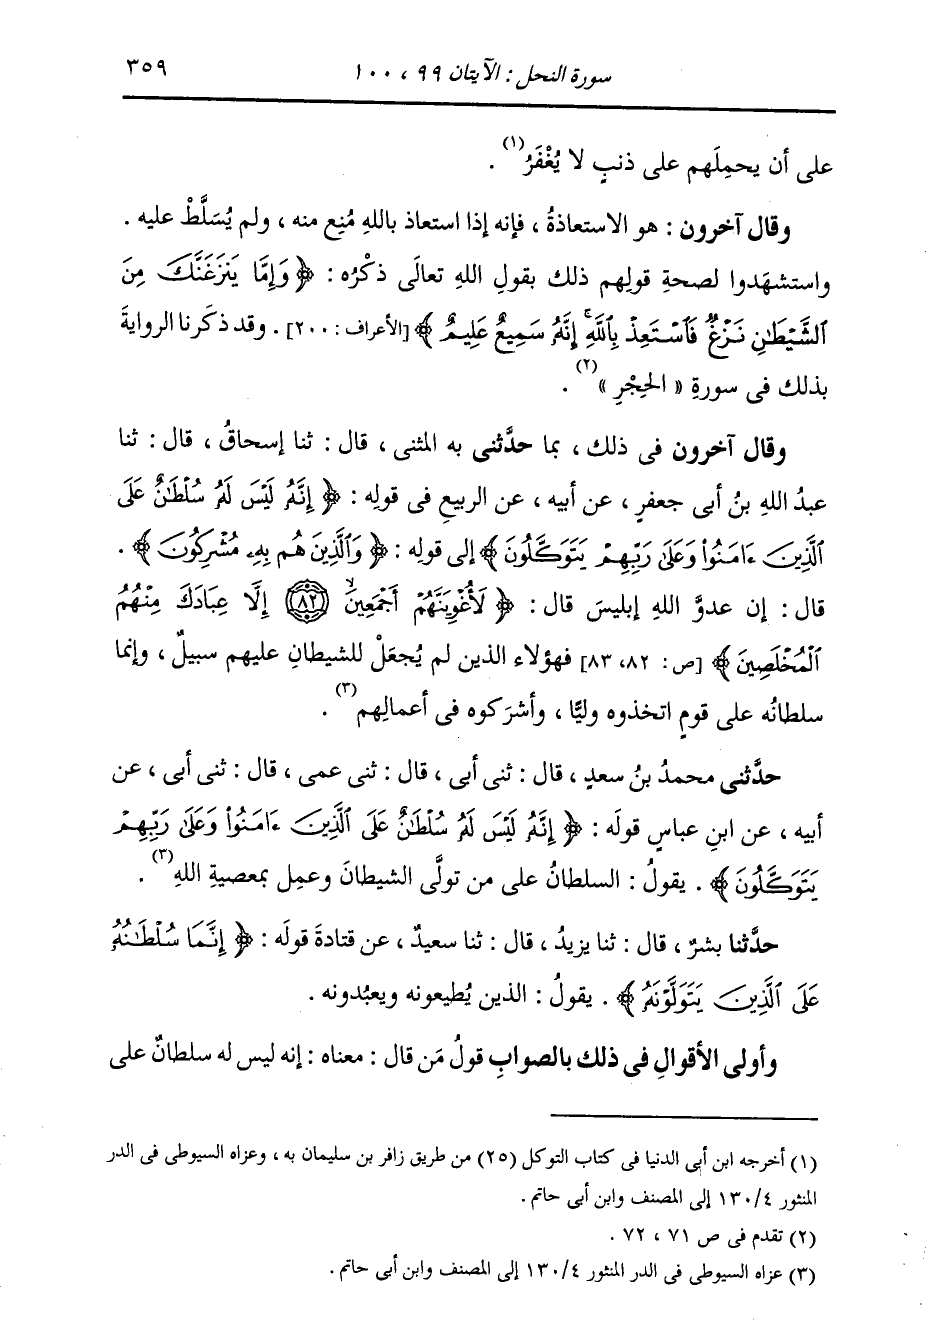 سورة النحل : الآيتان ٩٩ ، ١٠٠
٣٥٩
على أن يحمِلَهم على ذنبٍ لا يُغْفَرُ(١) .
وقال آخرون : هو الاستعاذةُ ، فإنه إذا استعاذ باللهِ مُنِع منه ، ولم يُسَلَّطْ عليه .
واستشهَدوا لصحةِ قولِهم ذلك بقولِ اللهِ تعالَى ذكْرُه : ﴿ وَإِمَّا يَنزَغَنَّكَ مِنَ
ٱلشَّيْطَٰنِ نَزْغٌ فَٱسْتَعِذْ بِٱللَّهِ ۚ إِنَّهُۥ سَمِيعٌ عَلِيمٌ ﴾ [الأعراف : ٢٠٠] . وقد ذكَرنا الروايةَ
بذلك فى سورةِ « الحِجْرِ »(٢) .
وقال آخرون فى ذلك ، بما حدَّثنى به المثنى ، قال : ثنا إسحاقُ ، قال : ثنا
عبدُ اللهِ بنُ أبى جعفرٍ ، عن أبيه ، عن الربيعِ فى قولِه : ﴿ إِنَّهُۥ لَيْسَ لَهُۥ سُلْطَٰنٌ عَلَى
ٱلَّذِينَ ءَامَنُوا۟ وَعَلَىٰ رَبِّهِمْ يَتَوَكَّلُونَ ﴾ إلى قولِه : ﴿ وَٱلَّذِينَ هُم بِهِۦ مُشْرِكُونَ ﴾ .
قال : إن عدوَّ اللهِ إبليسَ قال : ﴿ لَأُغْوِيَنَّهُمْ أَجْمَعِينَ ۙ (٨٢) إِلَّا عِبَادَكَ مِنْهُمُ
ٱلْمُخْلَصِينَ ﴾ [ص : ٨٢، ٨٣] فهؤلاء الذين لم يُجعَلْ للشيطانِ عليهم سبيلٌ ، وإنما
سلطانُه على قومٍ اتخذوه وليًّا ، وأشرَكوه فى أعمالِهم(٣) .
حدَّثنى محمدُ بنُ سعدٍ ، قال : ثنى أبى ، قال : ثنى عمى ، قال : ثنى أبى ، عن
أبيه ، عن ابنِ عباسٍ قولَه : ﴿ إِنَّهُۥ لَيْسَ لَهُۥ سُلْطَٰنٌ عَلَى ٱلَّذِينَ ءَامَنُوا۟ وَعَلَىٰ رَبِّهِمْ
يَتَوَكَّلُونَ ﴾ . يقولُ : السلطانُ على من تولَّى الشيطانَ وعمِل بمعصيةِ اللهِ(٣) .
حدَّثنا بشرٌ ، قال : ثنا يزيدُ ، قال : ثنا سعيدٌ ، عن قتادةَ قولَه : ﴿ إِنَّمَا سُلْطَٰنُهُۥ
عَلَى ٱلَّذِينَ يَتَوَلَّوْنَهُۥ ﴾ . يقولُ : الذين يُطيعونه ويعبُدونه .
وأولى الأقوالِ فى ذلك بالصوابِ قولُ مَن قال : معناه : إنه ليس له سلطانٌ على
(١) أخرجه ابن أبى الدنيا فى كتاب التوكل (٢٥) من طريق زافر بن سليمان به ، وعزاه السيوطى فى الدر
المنثور ١٣٠/٤ إلى المصنف وابن أبى حاتم .
(٢) تقدم فى ص ٧١ ، ٧٢ .
(٣) عزاه السيوطى فى الدر المنثور ١٣٠/٤ إلى المصنف وابن أبى حاتم .